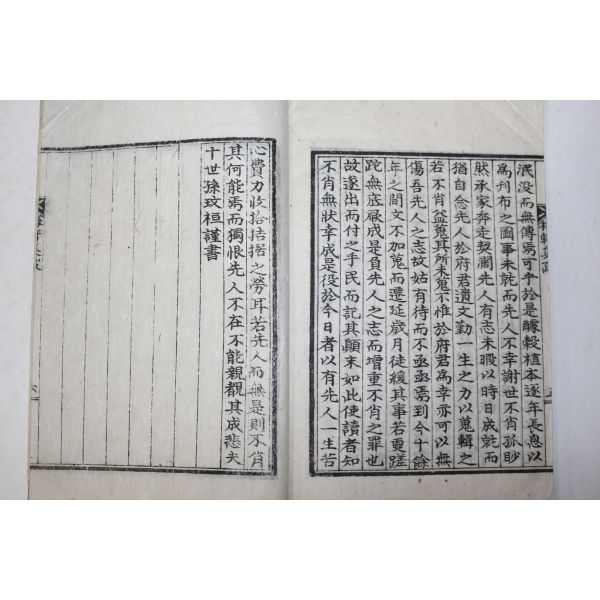 泯没而無傳焉可乎於是醵穀植本逐年長息以
爲刊布之圖事未就而先人不幸謝世不肖孤眇
然承家奔走契濶先人有志未暇以時日成就而
猶自念先人於府君遺文勤一生之力以蒐輯之
若不肖益蒐其所未蒐不惟於府君爲幸亦可以無
傷吾先人之志故姑有待而不亟亟焉到今十餘
年之間文不加蒐而遷延歲月徒緩其事若更蹉
跎無底厎成是負先人之志而增重不肖之罪也
故遂出而付之手民而記其顚末如此使讀者知
不肖無狀幸成是役於今日者以有先人一生苦
心費力收拾拮据之勞耳若先人而無是則不肖
其何能焉而獨恨先人不在不能親覩其成悲夫
十世孫玟桓謹書